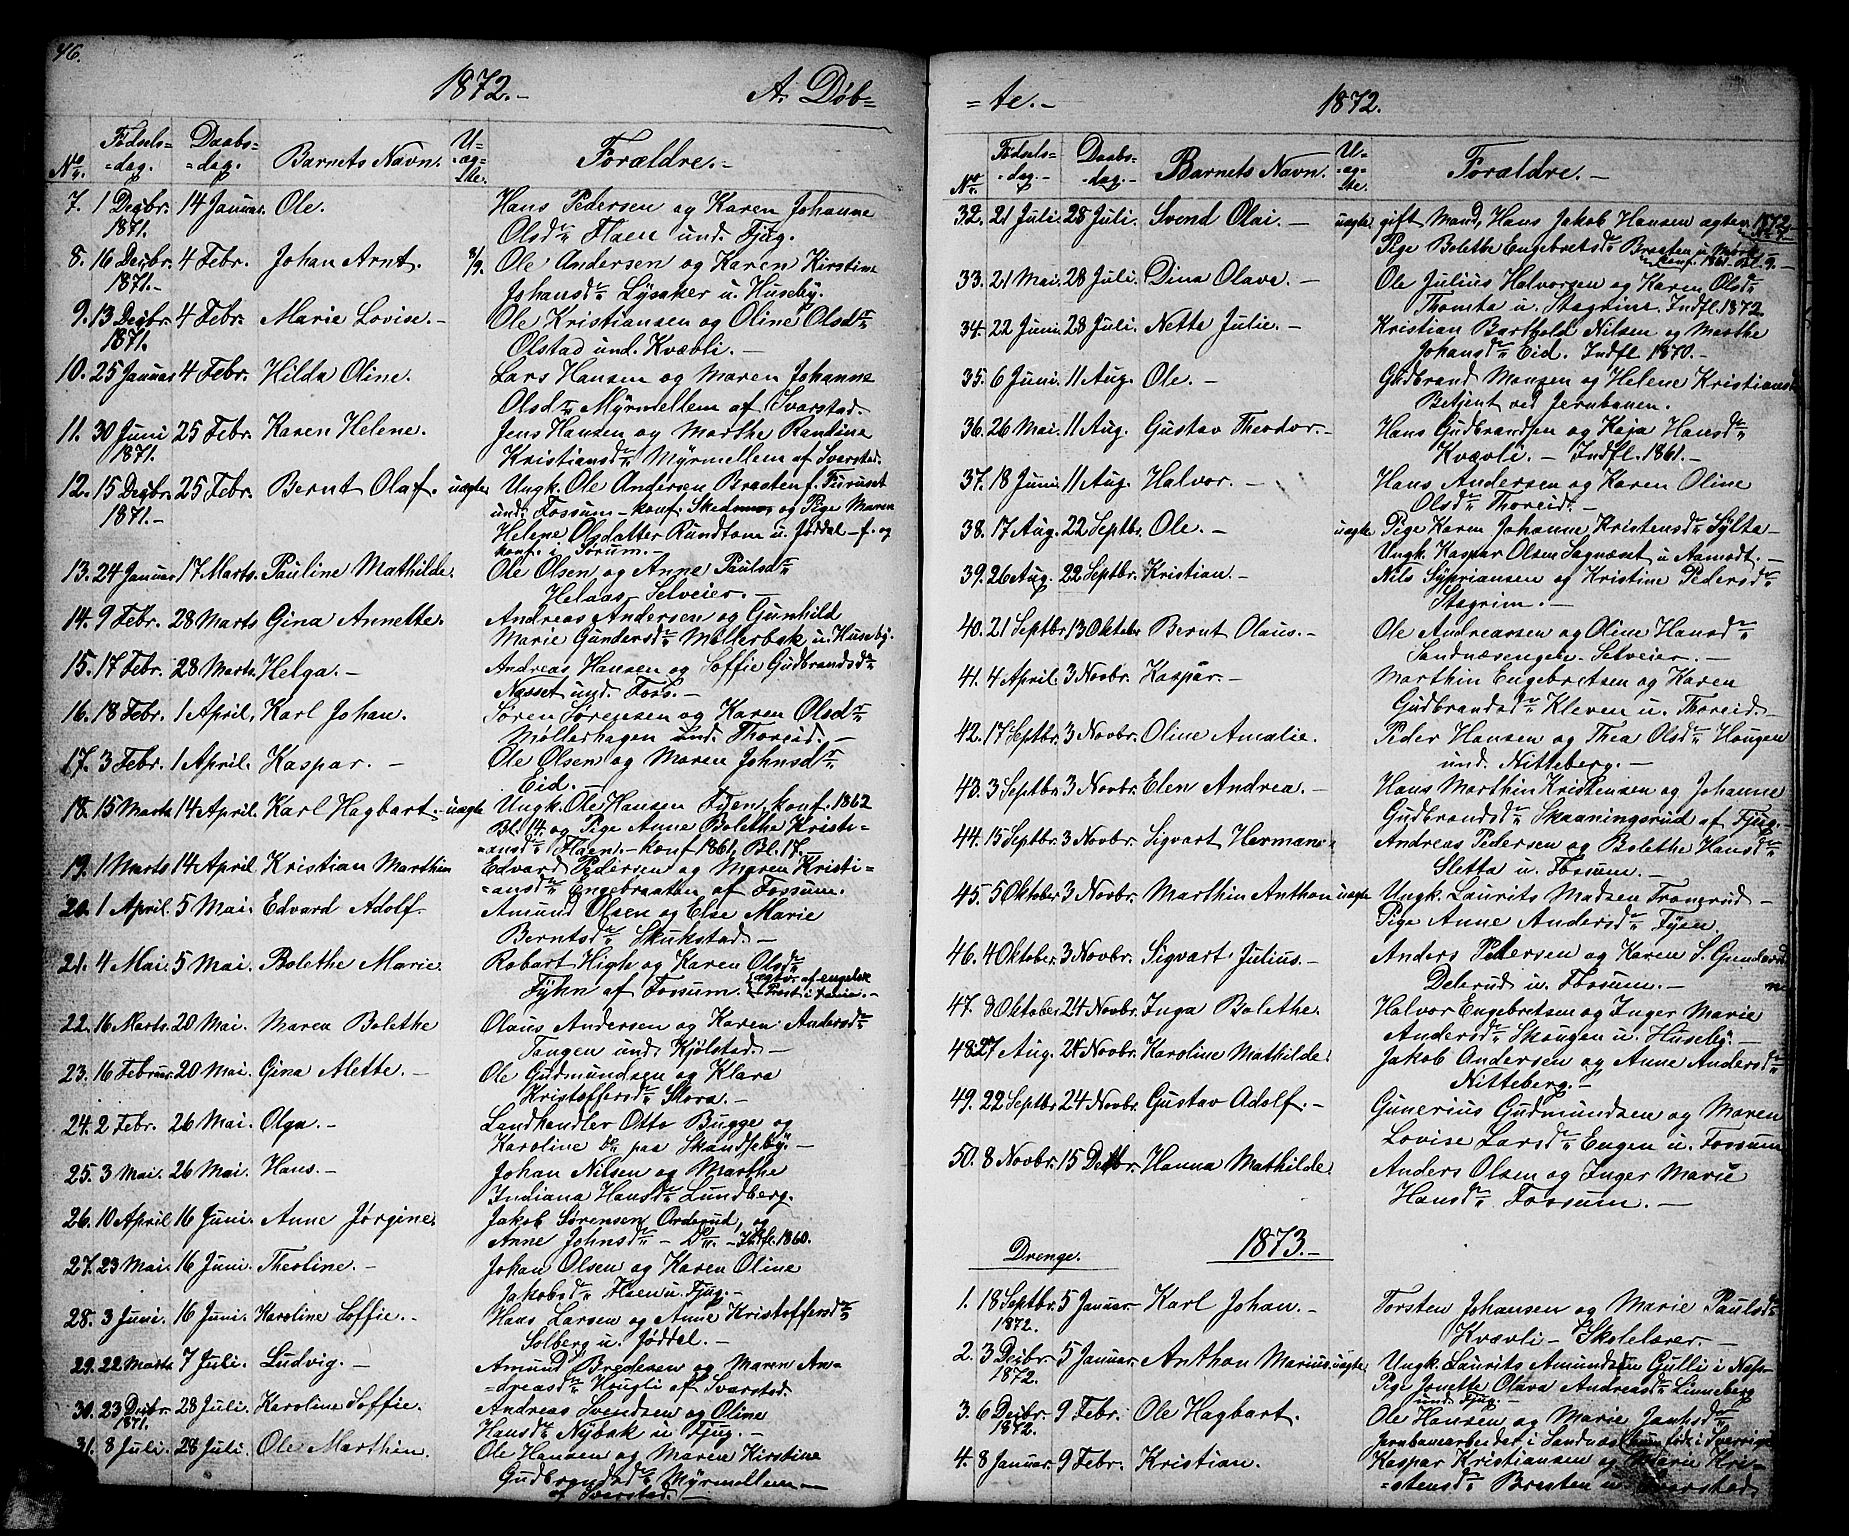 46.
1872.- A. Døb=
No. Fødsels=dag. Daabs=dag. Barnets Navn. U=æg=te. Forældre.-
7. 1 Decbr. 14 Januar. Ole. Hans Pedersen og Karen Johanne
1871. Olsdr. Flaen und. Fjug.
8. 16 Decbr. 4 Febr. Johan Arnt. 8/9. Ole Andersen og Karen Kirstine
1871.- Johansdr. Lysaker u. Huseby.
9. 13 Decbr. 4 Febr. Marie Lovise.- Ole Kristiansen og Oline Olsdr.
1871. Olstad und. Kvævli.-
10. 25 Januar 4 Febr. Hilda Oline. Lars Hansen og Maren Johanne
Olsdr. Myrmellem af Svarstad.
11. 30 Juni 25 Febr. Karen Helene. Jens Hansen og Marthe Randine
1871. Kristiansdr. Myrmellem af Svarstad.
12. 15 Decbr. 25 Febr. Bernt Olaf. uægte Ungk. Ole Andersen Brasten f. Furuset
1871.- und. Fossum - konf. Skedsmo, og Pige Maren
Helene Olsdatter Rundtom u. Jøddal - f. og
konf. i Sørum.-
13. 24 Januar 17 Marts. Pauline Mathilde. Ole Olsen og Anne Paulsdr.
Helaas, Selveier.-
14. 9 Febr. 28 Marts Gina Annette. Andreas Andersen og Gunhild
Marie Gundersdr. Mølkerbak u. Huseby.
15. 17 Febr. 28 Marts. Helga.- Andreas Hansen og Soffie Gudbrandsdr.
Næsset und. Foss.-
16. 18 Febr. 1 April. Karl Johan. Søren Sørensen og Karen Olsdr.
Møllerhagen und. Thoreid.-
17. 3 Febr. 1 April. Kaspar.- Ole Olsen og Maren Johnsdr.
Eid.-
18. 15 Marts 14 April. Karl Hagbart.- uægte Ungk. Ole Hansen Fyen, konf. 1862
Bl. 14. og Pige Anne Bolethe Kristi=
=ansdr. Flaen.- konf 1861. Bl. 17.-
19. 1 Marts 14 April. Kristian Marthin Edvard Pedersen og Maren Kristi=
=ansdr. Engebraaten af Fossum.
20. 1 April. 5 Mai. Edvard Adolf. Amund Olsen og Else Marie
Berntsdr. Skukstad.-
21. 4 Mai. 5 Mai. Bolethe Marie. Robart High og Karen Olsdr.
Fyhn af Fossum. (ægtev. af engelsk
Prest i
22. 16 Marts. 20 Mai. Maren Bolethe Olaus Andersen og Karen Andersdr.
Tangen und. Kjølstad.-
23. 16 Februar. 20 Mai. Gina Mette.- Ole Gudmundsen og Klara
Kristoffersdr. Slora.-
24. 2 Febr. 26 Mai. Olga.- Landhandler Otto Bugge og
Karoline do. paa Skandseby.-
25. 3 Mai. 26 Mai. Hans.- Johan Nilsen og Marthe
Indiana Hansdr. Lundberg.
26. 10 April 16 Juni. Anne Jørgine. Jakob Sørensen Orderud, og
Anne Johnsdr. - Do. - Indfl. 1860.
27. 23 Mai. 16 Juni. Theoline.- Johan Olsen og Karen Oline
Jakobsdr. Flaen u. Fjug.-
28. 3 Juni. 16 Juni. Karoline Soffie.- Hans Larsen og Anne Kristoffersdr.
Solberg u. Jøddal.-
29. 22 Marts 7 Juli. Ludvig.- Amund Bredesen og Maren An=
=dreasdr. Hougli af Svarstad.
30. 23 Decbr. 28 Juli. Karoline Soffie. Andreas Svendsen og Oline
1871. Hansdr. Nybak u Fjug.-
31. 8 Juli. 28 Juli. Ole Marthin. Ole Hansen og Maren Kirstine
Gudbrandsdr. Myrmellem
af Svarstad.-
=te.- 1872.
No. Fødsels=dag.- Daabs=dag.- Barnets Navn. U=æg=te. Forældre.-
32. 21 Juli. 28 Juli. Svend Olai.- uægte gift Mand, Hans Jakob Hansen
Pige Bolethe Engebretsdr. Brasten
konf. 1861 Bl. 9.-
33. 21 Mai. 28 Juli. Dina Olava.- Ole Julius Halvorsen og Karen Olsdr.
Thomta u. Stagrim. Indfl. 1872
34. 22 Juni. 28 Juli. Nette Julie.- Kristian Barthold Nilsen og Marthe
Johansdr. Eid. Indfl. 1870.-
35. 6 Juni. 11 Aug. Ole.- Gudbrand Monsen og Helene Kristiansdr
Betjent ved Jernbanen.
36. 26 Mai. 11 Aug. Gustav Theodor.- Hans Gudbrandsen og Kaja Hansdr.
Kvævli.- Indfl. 1861.-
37. 18 Juni. 11 Aug. Halvor.- Hans Andersen og Karen Oline
Olsdr. Thoreid.-
38. 17 Aug. 22 Septbr. Ole.- uægte Pige Karen Johanne Kristensdr. Sylta-
Ungk. Kaspar Olsen Sagnæset u Aamodt.-
39. 26 Aug. 22 Septbr. Kristian.- Nils Sypriansen og Kristine Pedersdr.
Stagrim.-
40. 21 Septbr. 13 Oktober Bernt Olaus.- Ole Andreassen og Oline Hansdr.
Sandnæsengen- Selveier.-
41. 4 April. 3 Novbr. Kaspar.- Marthin Engebretsen og Karen
Gudbrandsdr. Kleven u. Thoreid.-
42. 17 Septbr. 3 Novbr. Oline Amalie. Peder Hansen og Thea Olsdr. Hougen
und. Nitteberg.-
43. 3 Septbr. 3 Novbr. Elen Andrea.- Hans Marthin Kristensen og Johanne
Gudbrandsdr. Skaaningsrud af Fjug.
44. 15 Septbr. 3 Novbr. Sigvart Herman.- Andreas Pedersen og Bolethe Hansdr.
Sletta u. Fossum.-
45. 5 Oktober 3 Novbr. Marthin Anthon uægte Ungk. Laurits Madsen Tromrud-
Pige Anne Andersdr. Fyen.
46. 4 Oktober. 3 Novbr. Sigvart Julius.- Anders Pedersen og Karen S. Gundersdr
Delerud u. Fossum.-
47. 8 Oktober 24 Novbr. Inga Bolethe. Halvor Engebretsen og Inger Marie
Andersdr. Skougen u. Huseby.-
48. 27 Aug. 24 Novbr. Karoline Mathilde. Jakob Andersen og Anne Andersdr.
Nitteberg.-
49. 22 Septbr. 24 Novbr. Gustav Adolf.- Gunerius Gudmundsen og Maren
Lovise Larsdr. Engen u. Fossum
50. 8 Novbr. 15 Decbr. Hanna Mathilde. Anders Olsen og Inger Marie
Hansdr. Fossum.-
Drenge. 1873.-
1. 18 Septbr. 5 Januar. Karl Johan.- Torsten Johansen og Marie Paulsdr.
1872. Kvævli- Skolelærer.-
2. 3 Decbr. 5 Januar. Anthon Marius. uægte. Ungk. Laurits Amundsen Gulli i Næs.-
1872. Pige Jonette Olava Andreasdr. Linneberg
und. Fjug.-
3. 6 Decbr. 9 Febr. Ole Hagbart. Ole Hansen og Marie
1872. Jernbanearbeidet i Sandnæs født i Sverrige
4. 8 Januar. 9 Febr. Kristian. Kaspar Kristiansen og Marie Kri=
=stensdr. Brasten u. Svarstad.